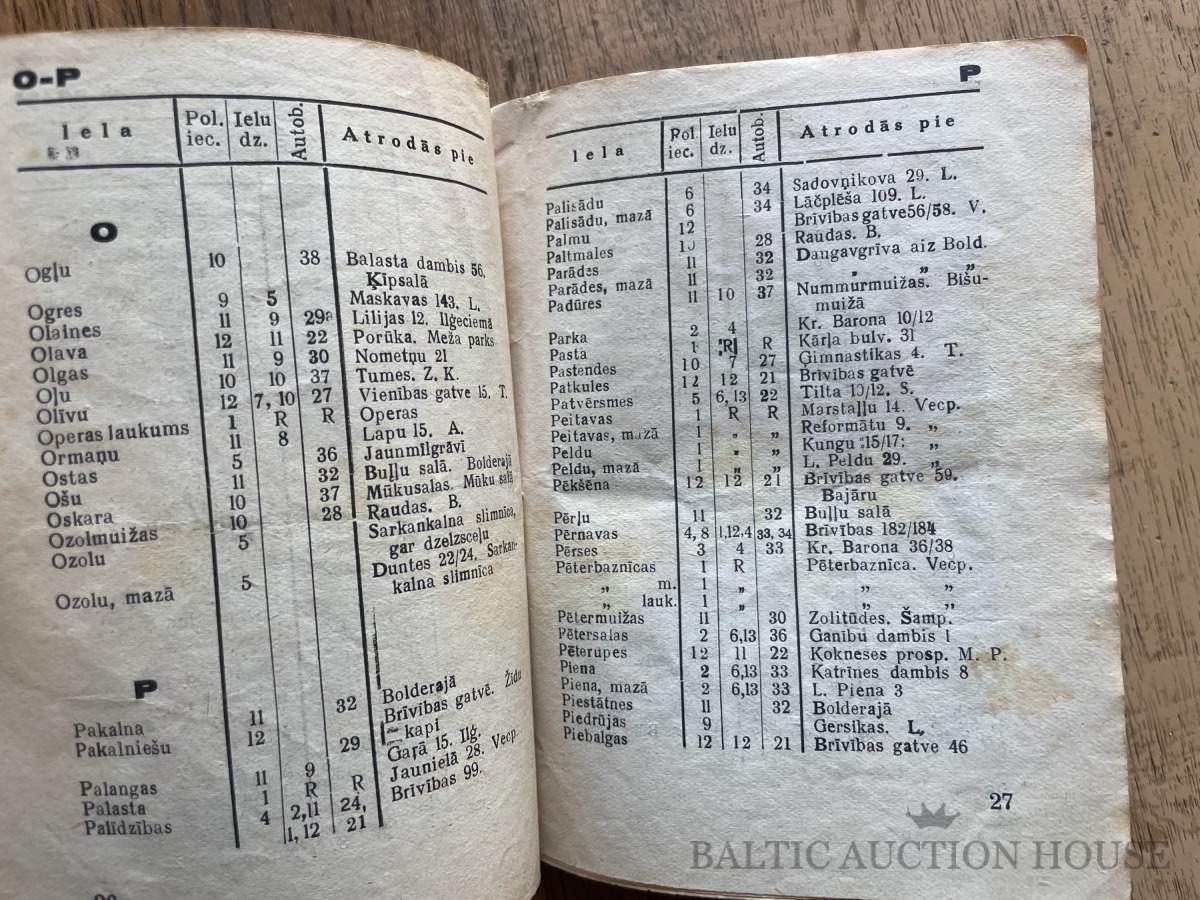 O-P
Iela Pol. iec. Ielu dz. Autob. Atrodās pie
O
Ogļu 10 38 Balasta dambis 56.
Ķīpsalā
Ogres 9 5 Maskavas 143. L.
Olaines 11 9 29a Lilijas 12. Iļģeciemā
Olava 12 11 22 Poruka. Meža parks
Olgas 11 9 30 Nometņu 21
Oļu 10 10 37 Tumes. Z. K.
Olīvu 12 7, 10 27 Vienības gatve 15. T.
Operas laukums 1 R R Operas
Ormaņu 11 8 Lapu 15. A.
Ostas 5 36 Jaunmīlgrāvī
Ošu 11 32 Buļļu salā. Bolderajā
Oskara 10 37 Mūkusalas. Mūku salā
Ozolmuižas 10 28 Raudas. B.
Ozolu 5 Sarkankalna slimnīca,
gar dzelzsceļu
Ozolu, mazā 5 Duntes 22/24. Sarkan-
kalna slimnīca
P
Pakalna 11 32 Bolderajā
Pakalniešu 12 29 Brīvības gatvē. Židu
kapi
Palangas 11 9 Gaŗā 15. Iļģ.
Palasta 1 R R Jaunielā 28. Vecp.
Palīdzības 4 2,11 24, Brīvības 99.
1, 12 21
P
Iela Pol. iec. Ielu dz. Autob. Atrodās pie
Palisādu 6 34 Sadovņikova 29. L.
Palisādu, mazā 6 34 Lāčplēša 109. L.
Palmu 12 Brīvības gatve 56/58. V.
Paltmales 10 28 Raudas. B.
Parādes 11 32 Daugavgrīva aiz Bold.
Parādes, mazā 11 32 „ „ „
Padūres 11 10 37 Nummurmuižas. Bišu-
muižā
Parka 2 4 Kr. Barona 10/12
Pasta 1 R R Kārļa bulv. 31
Pastendes 10 7 27 Ģimnastikas 4. T.
Patkules 12 12 21 Brīvības gatvē
Patvērsmes 5 6, 13 22 Tilta 10/12. S.
Peitavas 1 R R Marstaļļu 14. Vecp.
Peitavas, mazā 1 „ „ Reformātu 9. „
Peldu 1 „ „ Kungu 15/17; „
Peldu, mazā 1 „ „ L. Peldu 29. „
Pēkšēna 12 12 21 Brīvības gatve 59.
Bajāru
Pērļu 11 32 Buļļu salā
Pērnavas 4, 8 1,12,4 33, 34 Brīvības 182/184
Pērses 3 4 33 Kr. Barona 36/38
Pēterbaznīcas 1 R Pēterbaznīca. Vecp.
„ m. 1 „ „ „
„ lauk. 1 „ „ „
Pētermuižas 11 30 Zolitūdes. Šamp.
Pētersalas 2 6,13 36 Ganību dambis 1
Pēterupes 12 11 22 Kokneses prosp. M. P.
Piena 2 6,13 33 Katrīnes dambis 8
Piena, mazā 2 6,13 33 L. Piena 3
Piestātnes 11 32 Bolderajā
Piedrūjas 9 Gersikas. L.
Piebalgas 12 12 21 Brīvības gatve 46
27
BALTIC AUCTION HOUSE